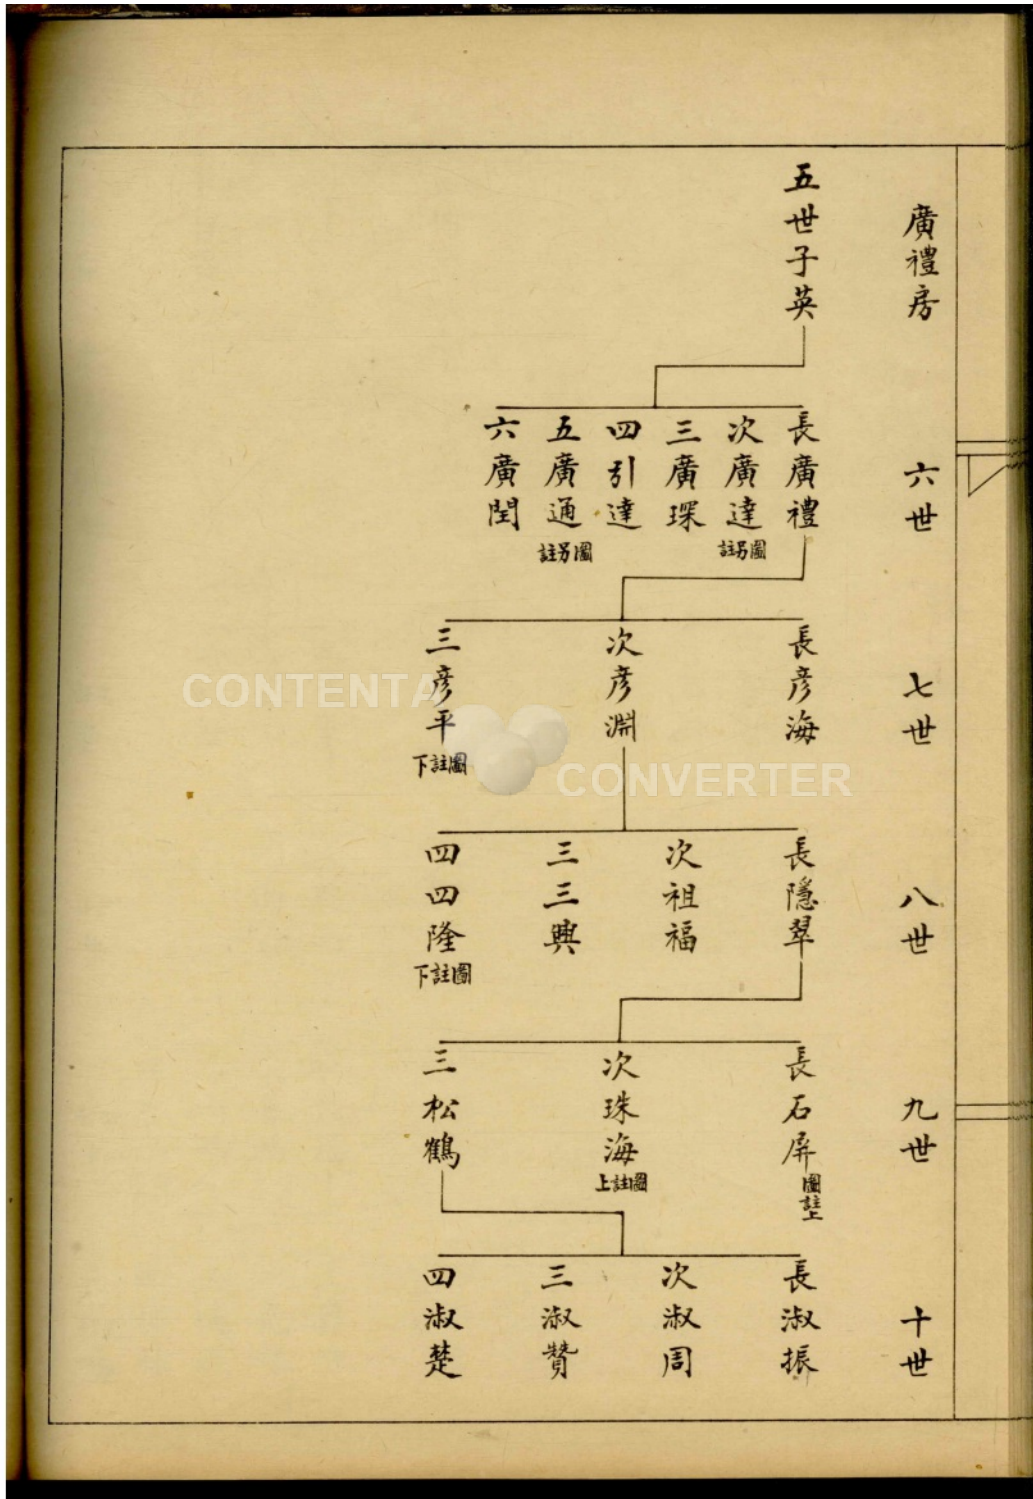 廣禮房
六世
七世
八世
九世
十世
五世子英
長廣禮
次廣達
圖另註
三廣琛
四引達
五廣通
圖另註
六廣閏
長彥海
次彥淵
三彥平
圖註下
長隱翠
次祖福
三三興
四四隆
圖註下
長石屏
圖註上
次珠海
圖註上
三松鶴
長淑振
次淑周
三淑贊
四淑楚
CONTENTA
CONVERTER